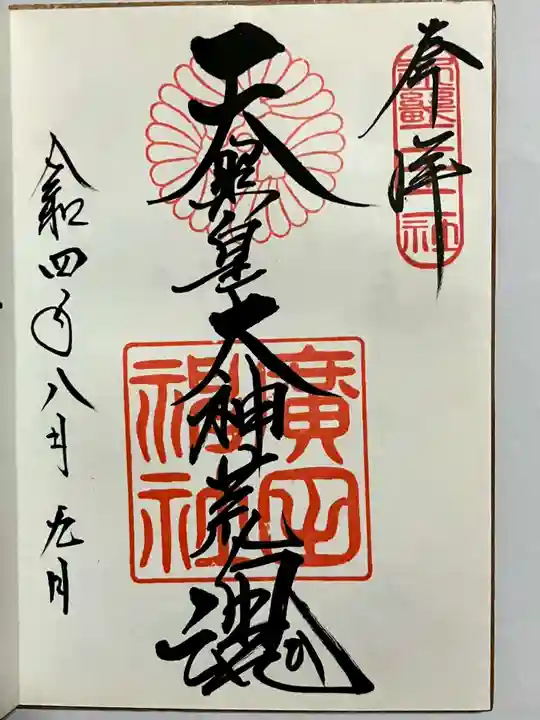 奉拝
天照皇大神荒魂
廣田
神社
令和四年八月九日